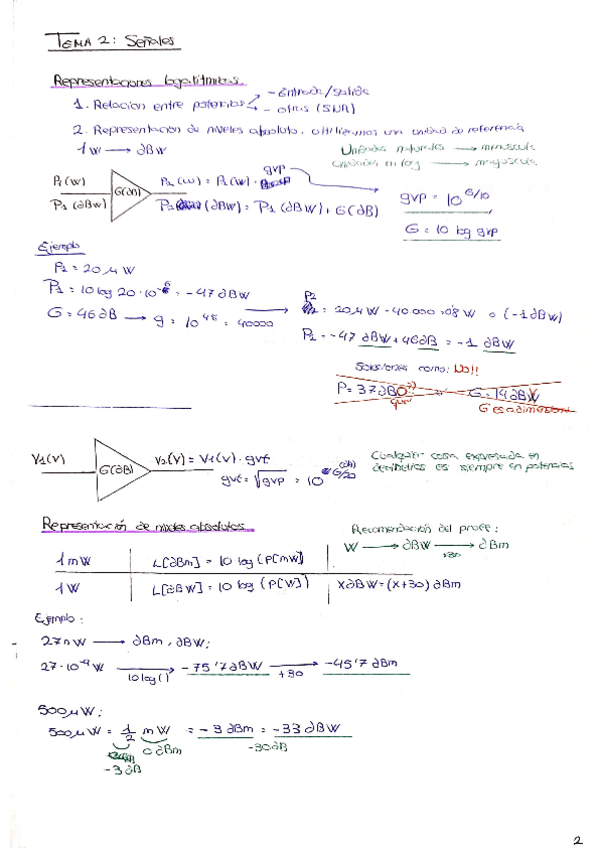 TEMA 2: Señales
Representaciones logarítmicas.
1. Relación entre potencias - Entrada/salida
- otras (SNR)
2. Representación de niveles absoluto. utilizamos una unidad de referencia
1W → dBW
Unidades naturales → minúscula
Unidades en log → mayúscula
P1(W) G(dB) P2(W) = P1(W) · gvp
P1(dBW) P2 (dBW) = P1(dBW) + G(dB)
gvp = 10^G/10
G = 10 log gvp
Ejemplo
P1 = 20 μW
P1 = 10 log 20·10^-6 = -47 dBW
G = 46 dB → g = 10^4'6 = 40000
P2 = 20 μW · 40000 = 0'8 W o (-1 dBW)
P2 = -47 dBW + 46 dB = -1 dBW
Soluciones como: NO!!
P = 37 dB G = 14 dBW
G es adimensional
V1(V) G(dB) V2(V) = V1(V) · gvt
gvt = √gvp = 10^G/20 (dB)
Cualquier cosa expresada en
decibelios es siempre en potencias
Representación de niveles absolutos
Recomendación del profe:
W → dBW → dBm
+30
1mW L[dBm] = 10 log (P[mW])
1W L[dBW] = 10 log (P[W]) X dBW = (X+30) dBm
Ejemplo:
27nW → dBm, dBW;
27·10^-9 W → -75'7 dBW → -45'7 dBm
10log() +30
500 μW;
500 μW = 1/2 mW = -3 dBm = -33 dBW
0 dBm -30dB
-3 dB
2